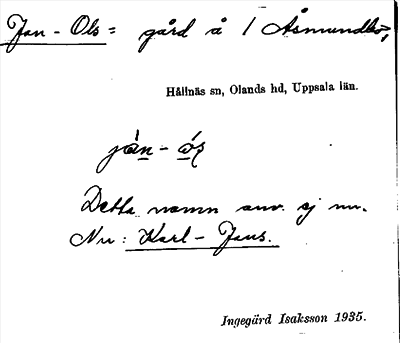 Jan - Ols = gård å 1 Åsmundbo,
Hållnäs sn, Olands hd, Uppsala län.
jàn - óş
Detta namn anv. ej nu.
Nu: Karl - Jans.
Ingegärd Isaksson 1935.